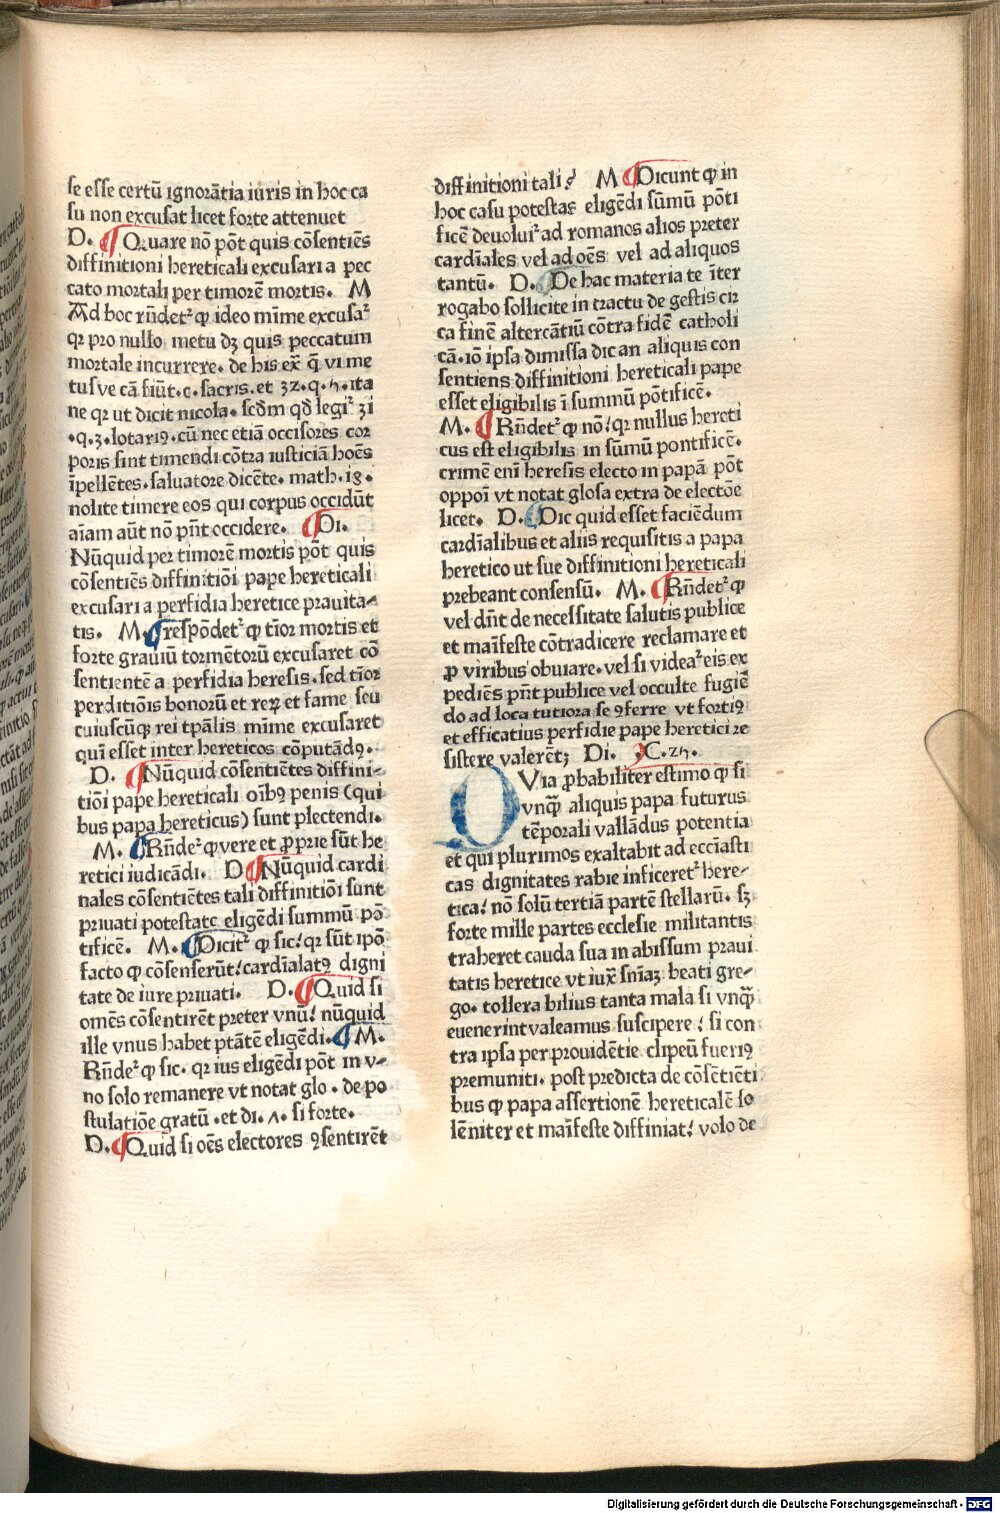 se esse certū ignorātia iuris in hoc ca
su non excusat licet forte attenuet
D. ¶ Quare nō pōt quis cōsentiēs
diffinitioni hereticali excusari a pec
cato mortali per timorē mortis. M
Ad hoc rn̄detᷣ ꝙ ideo mīme excusaᷣ
qꝛ pro nullo metu dꝫ quis peccatum
mortale incurrere. de his ex̄ q̄ vi me
tusve cā fiūt. c. sacris. et 32. q. 5. ita
ne qꝛ ut dicit nicola. scd̄m qd̄ legiᷣ 31
.q. 3. lotariꝯ. cū nec etiā occisores cor
poris sint timendi cōtra iusticiā hoēs
īpellētes. saluatore dicēte. math. 18.
nolite timere eos qui corpus occidūt
aīam aūt nō pn̄t occidere. ¶ Di.
Nūquid per timorē mortis pōt quis
cōsentiēs diffinitiōi pape hereticali
excusari a perfidia heretice prauita-
tis. M. ¶ respōdetᷣ ꝙ tīor mortis et
forte grauiū tormētorū excusaret cō
sentientē a perfidia heresis. sed tīor
perditiōis bonorū et reꝝ et fame seu
cuiuscūqꝫ rei tp̄alis mīme excusaret
quī esset inter hereticos cōputādꝯ.
D. ¶ Nūquid cōsentiētes diffini-
tiōi pape hereticali oībꝯ penis (qui
bus papa hereticus) sunt plectendi.
M. ¶ Rn̄deᷣ ꝙ vere et ꝓprie sūt he
retici iudicādi. D ¶ Nūquid cardi
nales cōsentiētes tali diffinitiōi sunt
priuati potestate eligēdi summū pō
tificē. M. ¶ Dicitᷣ ꝙ sic! qꝛ sūt ipō
facto ꝙ cōsenserūt! cardīalatꝯ digni
tate de iure priuati. D. ¶ Quid si
omēs cōsentirēt preter vnū! nūquid
ille vnus habet ptātē eligēdi. ¶ M.
Rn̄deᷣ ꝙ sic. qꝛ ius eligēdi pōt in v-
no solo remanere vt notat glo. de po
stulatiōe gratū. et di. ʌ. si forte.
D. ¶ Quid si oēs electores ꝯsentirēt
diffinitioni tali? M ¶ Dicunt ꝙ in
hoc casu potestas eligēdi sūmū pōti
ficē deuoluiᷣ ad romanos alios preter
cardīales vel ad oēs vel ad aliquos
tantū. D. ¶ De hac materia te īter
rogabo sollicite in tractu de gestis cir
ca finē altercātiū cōtra fidē catholi
cā. iō ipsa dimissa dic an aliquis con
sentiens diffinitioni hereticali pape
esset eligibilis ī summū pōtificē.
M. ¶ Rn̄detᷣ ꝙ nō! qꝛ nullus hereti
cus est eligibilis in sūmū pontificē.
crimē enī heresis electo in papā pōt
oppoī vt notat glosa extra de electōe
licet. D. ¶ Dic quid esset faciēdum
cardīalibus et aliis requisitis a papa
heretico ut sue diffinitioni hereticali
prebeant consensū. M. ¶ Rn̄detᷣ ꝙ
vel dn̄t de necessitate salutis publice
et maīfeste cōtradicere reclamare et
ꝓ viribus obuiare. vel si videaᷣ eis ex
pediēs pn̄t publice vel occulte fugiē
do ad loca tutiora se ꝯferre vt fortiꝯ
et efficatius perfidie pape heretici re
sistere valerēt; Di. .C. 25.
QVia ꝓbabiliter estimo ꝙ si
vnqꝫ̄ aliquis papa futurus
tēporali vallādus potentia
et qui plurimos exaltabit ad ecciasti
cas dignitates rabie inficeretᷣ here-
tica! nō solū tertiā partē stellarū. sꝫ
forte mille partes ecclesie militantis
traheret cauda sua in abissum praui
tatis heretice vt iux̄ sn̄iaꝫ beati gre-
go. tollera bilius tanta mala si vnqꝫ̄
euenerint valeamus suscipere! si con
tra ipsa per prouidētie clipeū fueriꝯ
premuniti. post predicta de cōsētiēti
bus ꝙ papa assertionē hereticalē so
lēniter et maīfeste diffiniat! volo de
Digitalisierung gefördert durch die Deutsche Forschungsgemeinschaft - DFG